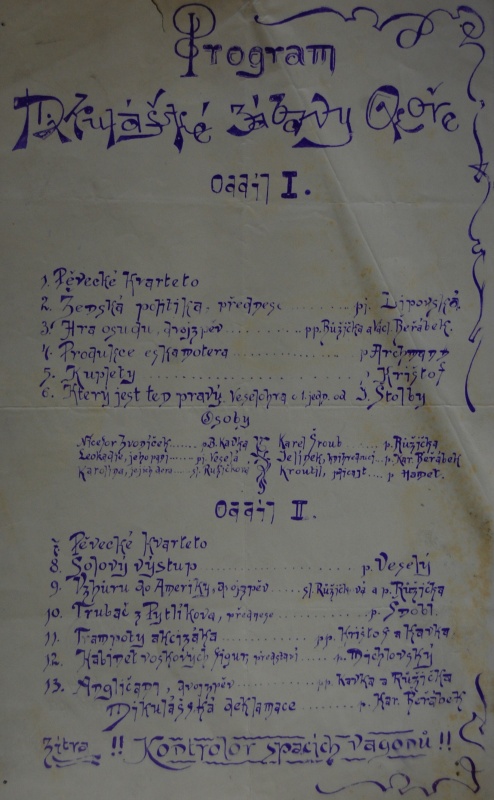 Program
Mikulášské zábavy
Oddíl I.
1. Pěvecké kvarteto
2. Ženská politika, přednese ........ pí. Lipovská.
3. Hra osudu, dvojzpěv ......... pp. Růžička a Václ. Beřábek.
4. Produkce eskamotera ............ p. Archmann
5. Kuplety ............ p. Krištof
6. Který jest ten pravý, Veselohra o 1. jedn. od J. Štolby
Osoby
Nicefor Zvoníček ...... p. B. Kavka Karel Šroub ...... p. Růžička
Leokadie, jeho paní ... pí. Veselá Jelínek, ... p. Kar. Beřábek
Karolina, jejich dcera ... sl. Růžičkova Kroutil, ... p. Hamet.
Oddíl II.
Pěvecké kvarteto
8. Solový výstup ............ p. Veselý
9. Vzhůru do Ameriky, dvojzpěv ..... sl. Růžičková a p. Růžička
10. Trubač z Pytlíkova, přednese ......... p. Šnobl
11. Trampoty akcizáka ......... pp. Krištof a Kavka
12. Kabinet voskových figur, představí ...... p. Michlovský
13. Angličani, dvojzpěv ......... pp. Kavka a Růžička
Mikulášská deklamace ........ p. Kar. Beřábek
Zítra !! Kontrolor spacích vagonů !!